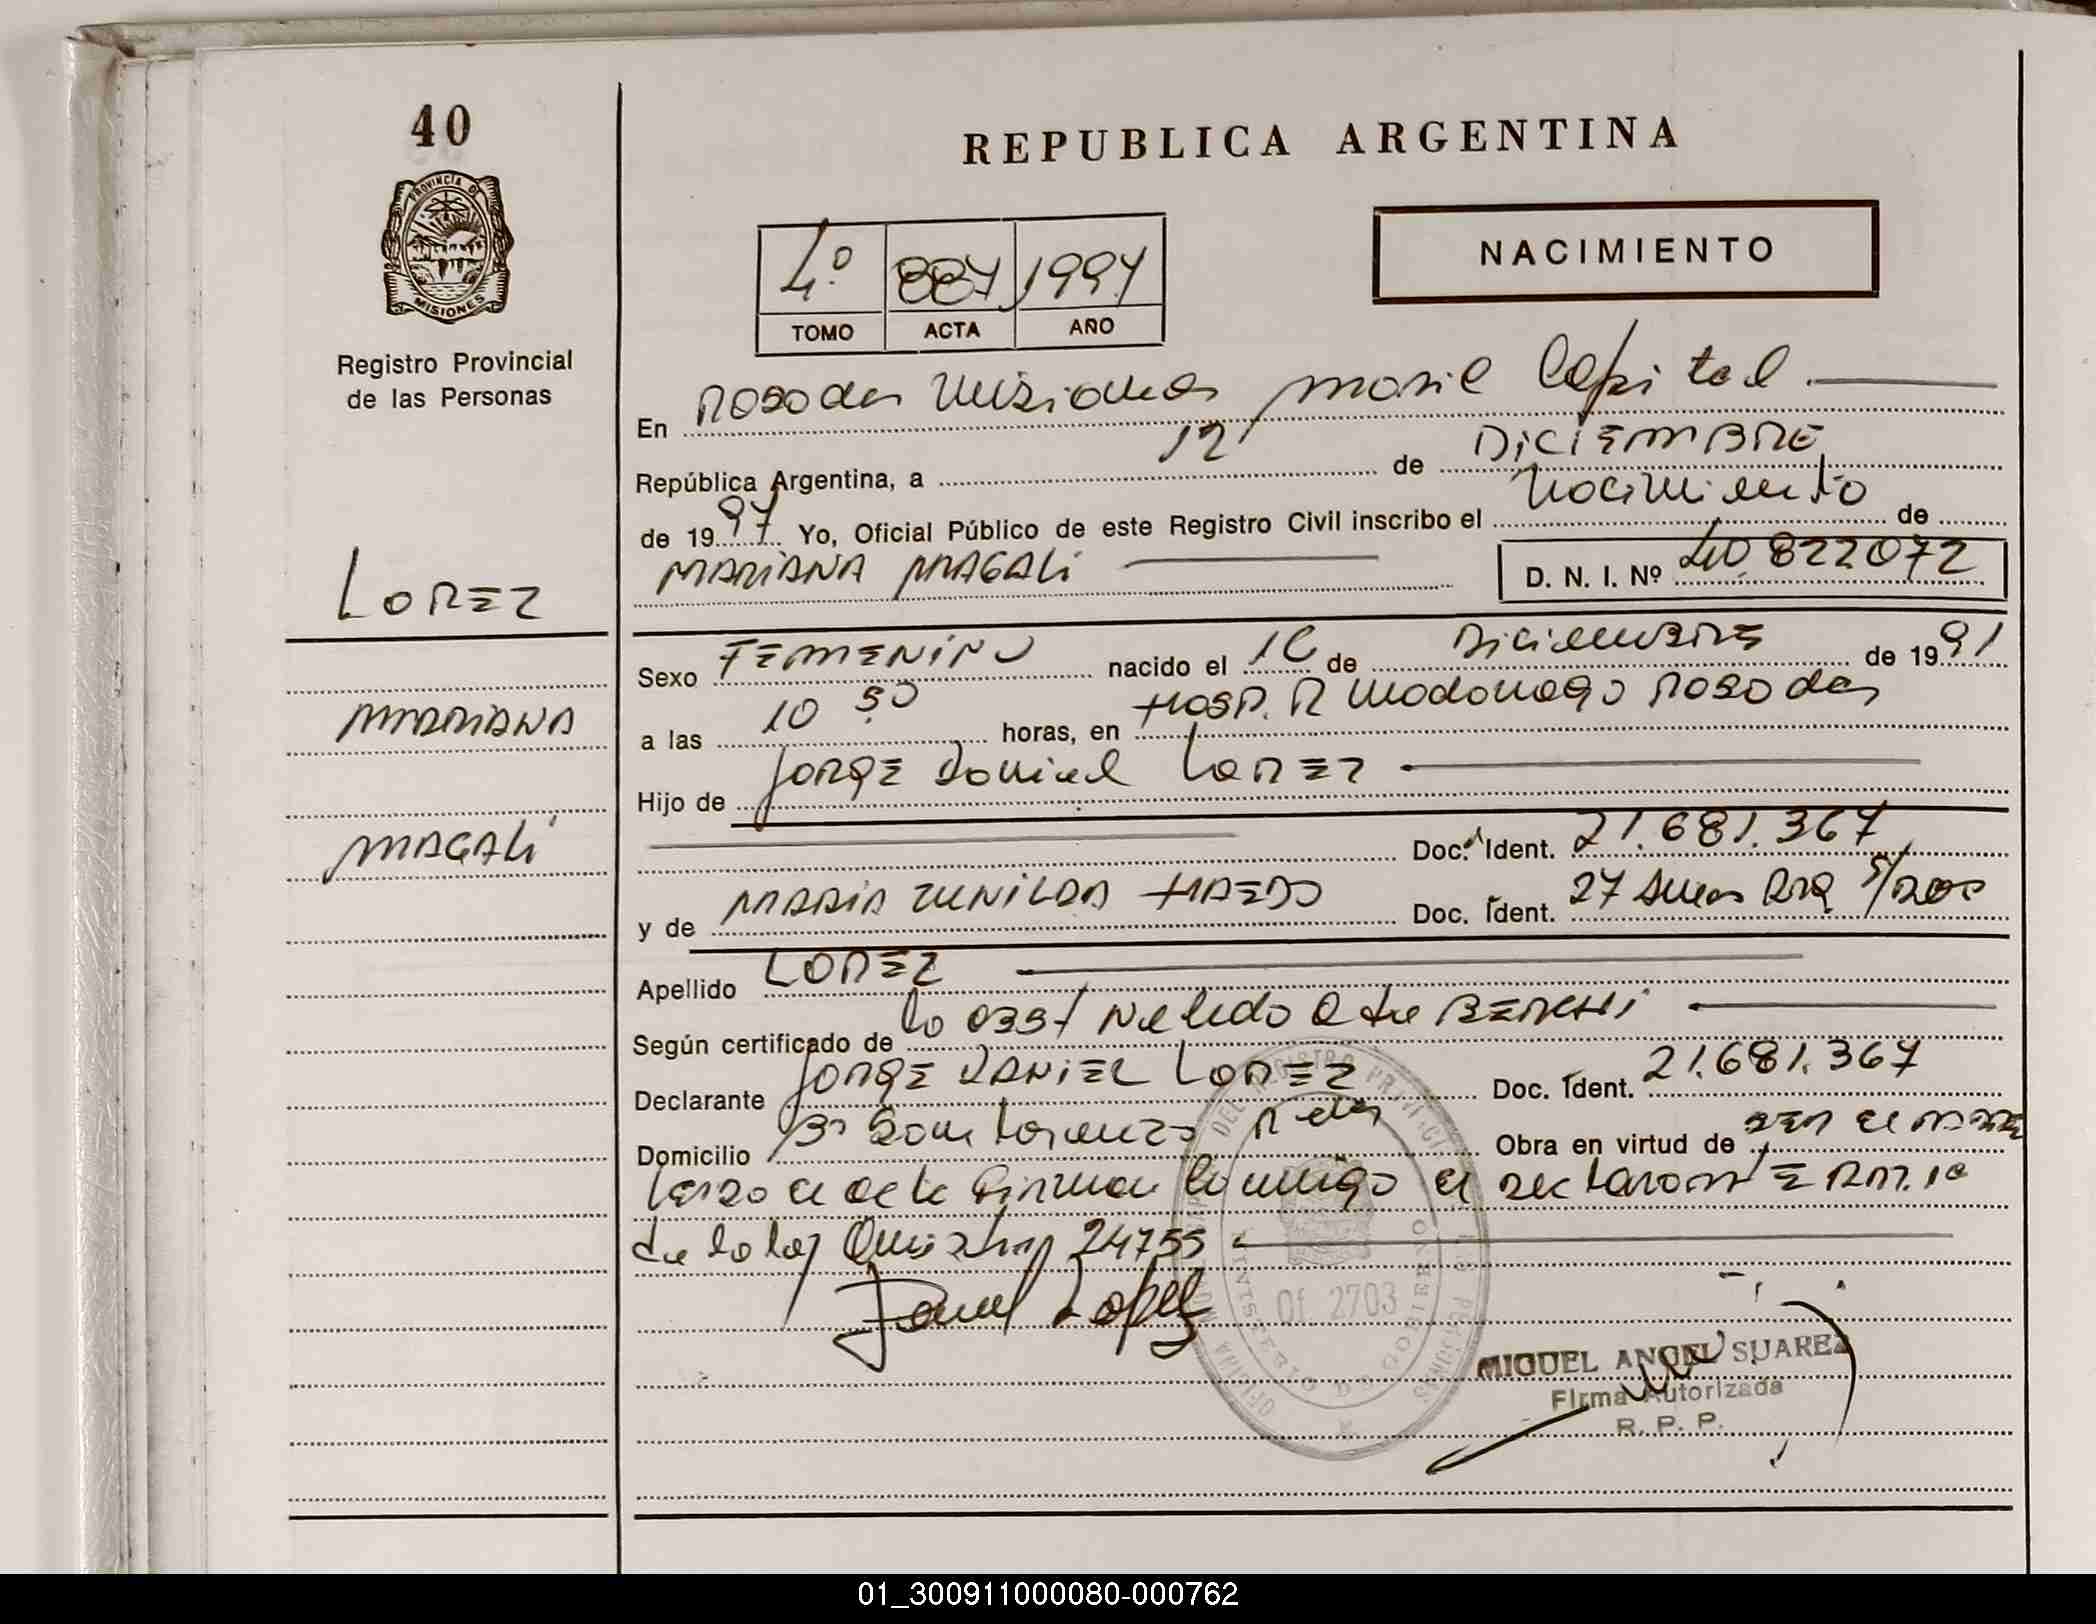 40
REPUBLICA ARGENTINA
PROVINCIA DE
MISIONES
Registro Provincial
de las Personas
4º 887 1997
TOMO ACTA AÑO
NACIMIENTO
En Posadas Misiones Capital.
República Argentina, a 12 de DICIEMBRE
de 1997 Yo, Oficial Público de este Registro Civil inscribo el Nacimiento de
MARIANA MAGALI D. N. I. Nº 40.822072
LOPEZ
MARIANA
MAGALI
Sexo FEMENINO nacido el de Diciembre de 19
a las 10 30 horas, en HOSP. R Madariaga Posadas
Hijo de JORGE Daniel LOPEZ
Doc. Ident. 21.681.367
y de MARIA ZUNILDA HAEDO Doc. Ident. 27 Años Arg
Apellido LOPEZ
Según certificado de la Obst Nelida
Declarante JORGE DANIEL LOPEZ Doc. Ident. 21.681.367
Domicilio Bº San Lorenzo Obra en virtud de ser el
firman conmigo el declarante
24755
Daniel Lopez
Of 2703
MINISTERIO DE GOBIERNO
MIGUEL ANGEL SUAREZ
Firma Autorizada
R. P. P.
01_300911000080-000762